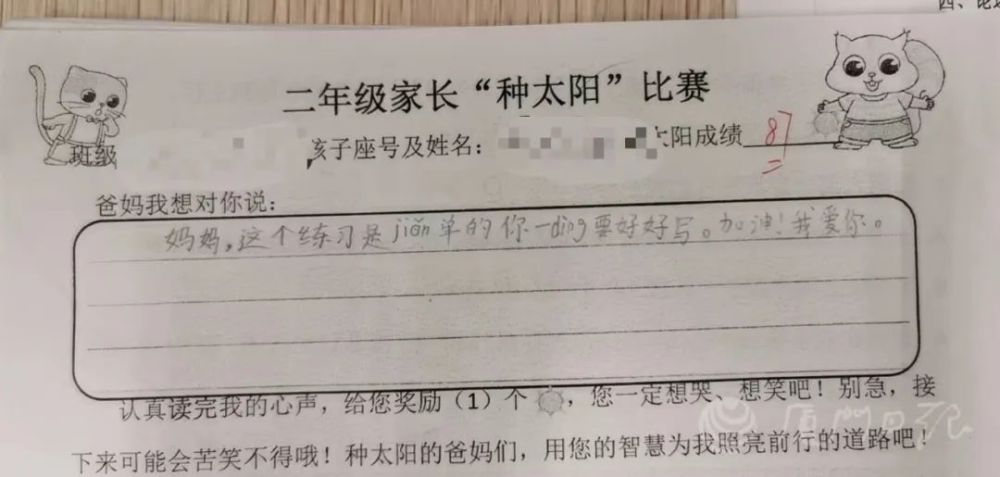 四、
二年级家长“种太阳”比赛
班级 孩子座号及姓名： 太阳成绩 87
爸妈我想对你说：
妈妈，这个练习是jiǎn单的你一dìng要好好写。加油！我爱你。
认真读完我的心声，给您奖励（1）个 ，您一定想哭、想笑吧！别急，接
下来可能会苦笑不得哦！种太阳的爸妈们，用您的智慧为我照亮前行的道路吧！